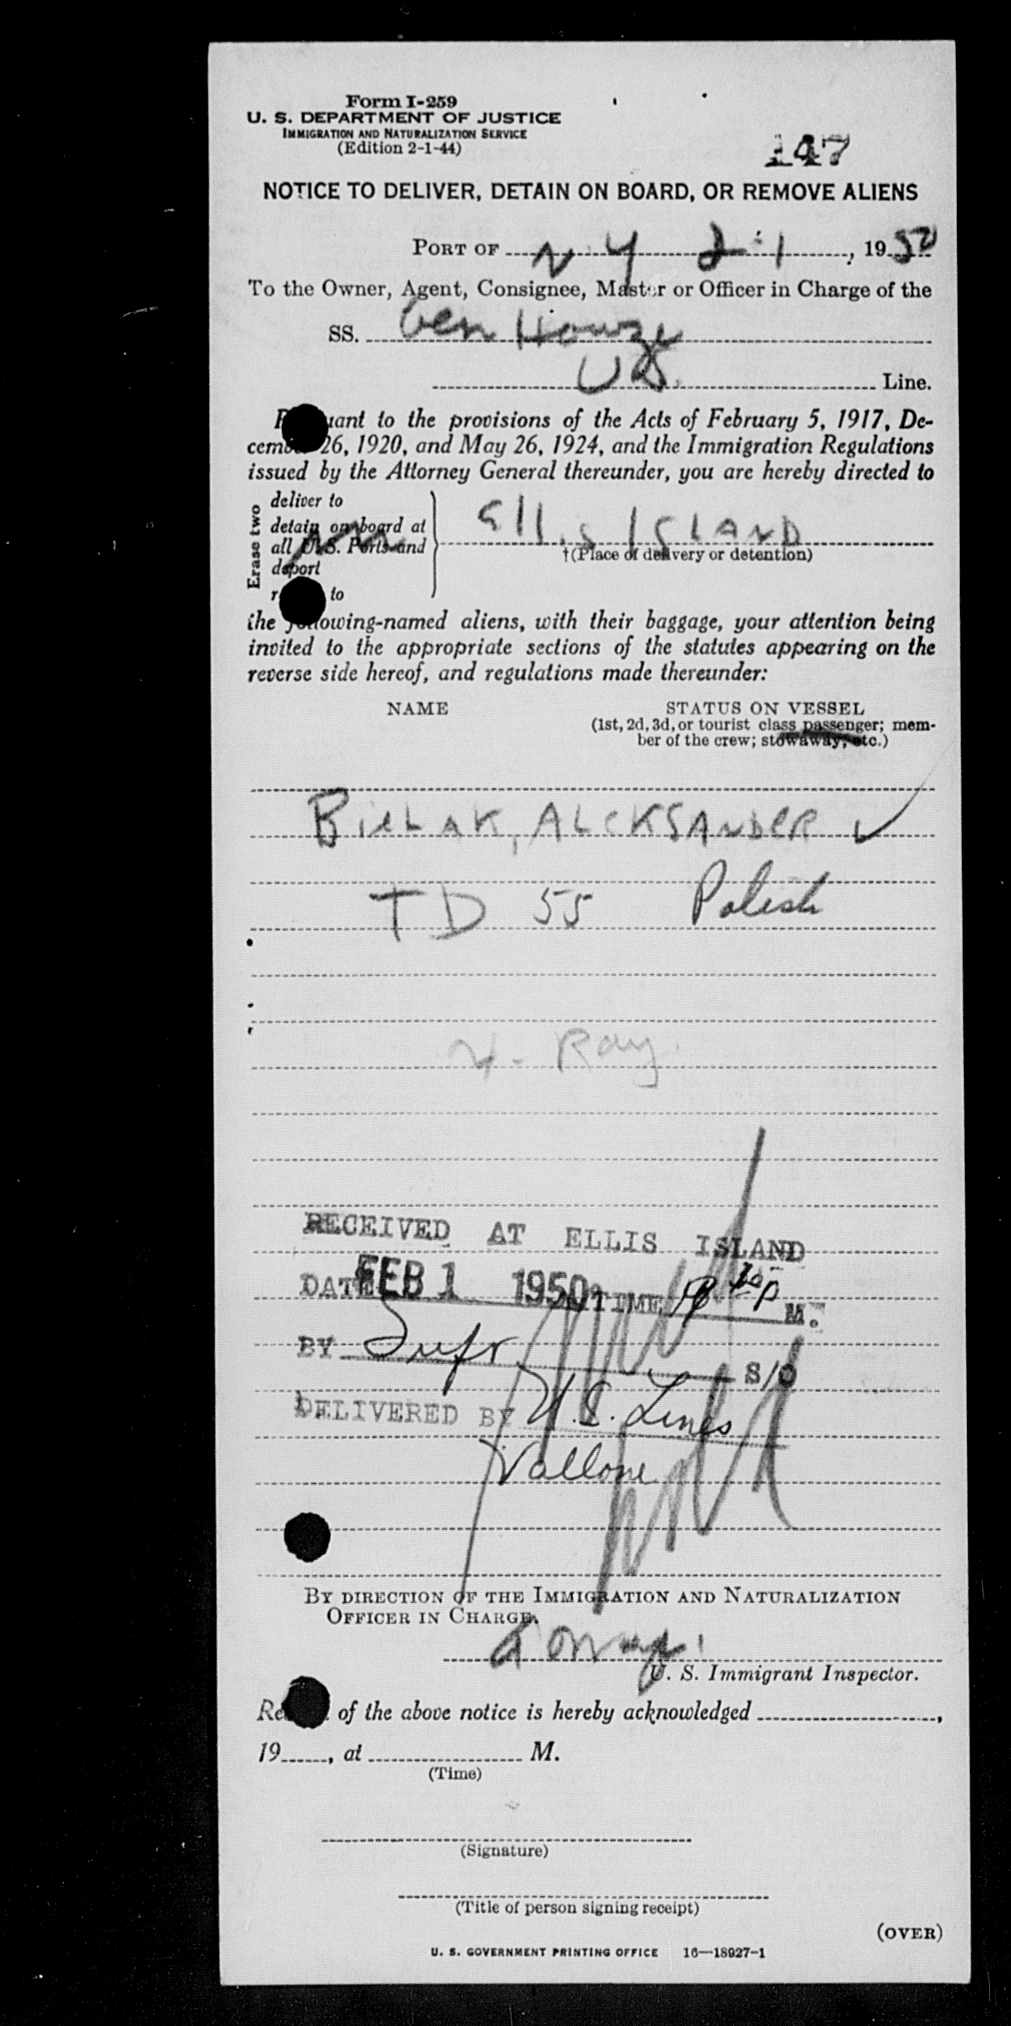 Form I-259
U. S. DEPARTMENT OF JUSTICE
IMMIGRATION AND NATURALIZATION SERVICE
(Edition 2-1-44)
147
NOTICE TO DELIVER, DETAIN ON BOARD, OR REMOVE ALIENS
PORT OF N Y 2-1, 1950
To the Owner, Agent, Consignee, Master or Officer in Charge of the
SS. Gen Howze
U S. Line.
uant to the provisions of the Acts of February 5, 1917, De-
cem 26, 1920, and May 26, 1924, and the Immigration Regulations
issued by the Attorney General thereunder, you are hereby directed to
Erase two
deliver to
detain on board at
all U. S. Ports and
deport
to
Ellis ISLAND
†(Place of delivery or detention)
the following-named aliens, with their baggage, your attention being
invited to the appropriate sections of the statutes appearing on the
reverse side hereof, and regulations made thereunder:
NAME STATUS ON VESSEL
(1st, 2d, 3d, or tourist class passenger; mem-
ber of the crew; stowaway, etc.)
BieLAK, ALeKSANDER ✓
TD 55 Polish
X-Ray
RECEIVED AT ELLIS ISLAND
DATE FEB 1 1950 TIME P M.
BY S/O
DELIVERED BY U.S. Lines
Vallone
BY DIRECTION OF THE IMMIGRATION AND NATURALIZATION
OFFICER IN CHARGE.
U. S. Immigrant Inspector.
Re of the above notice is hereby acknowledged ,
19 , at M.
(Time)
(Signature)
(Title of person signing receipt)
(OVER)
U. S. GOVERNMENT PRINTING OFFICE 16—18927-1